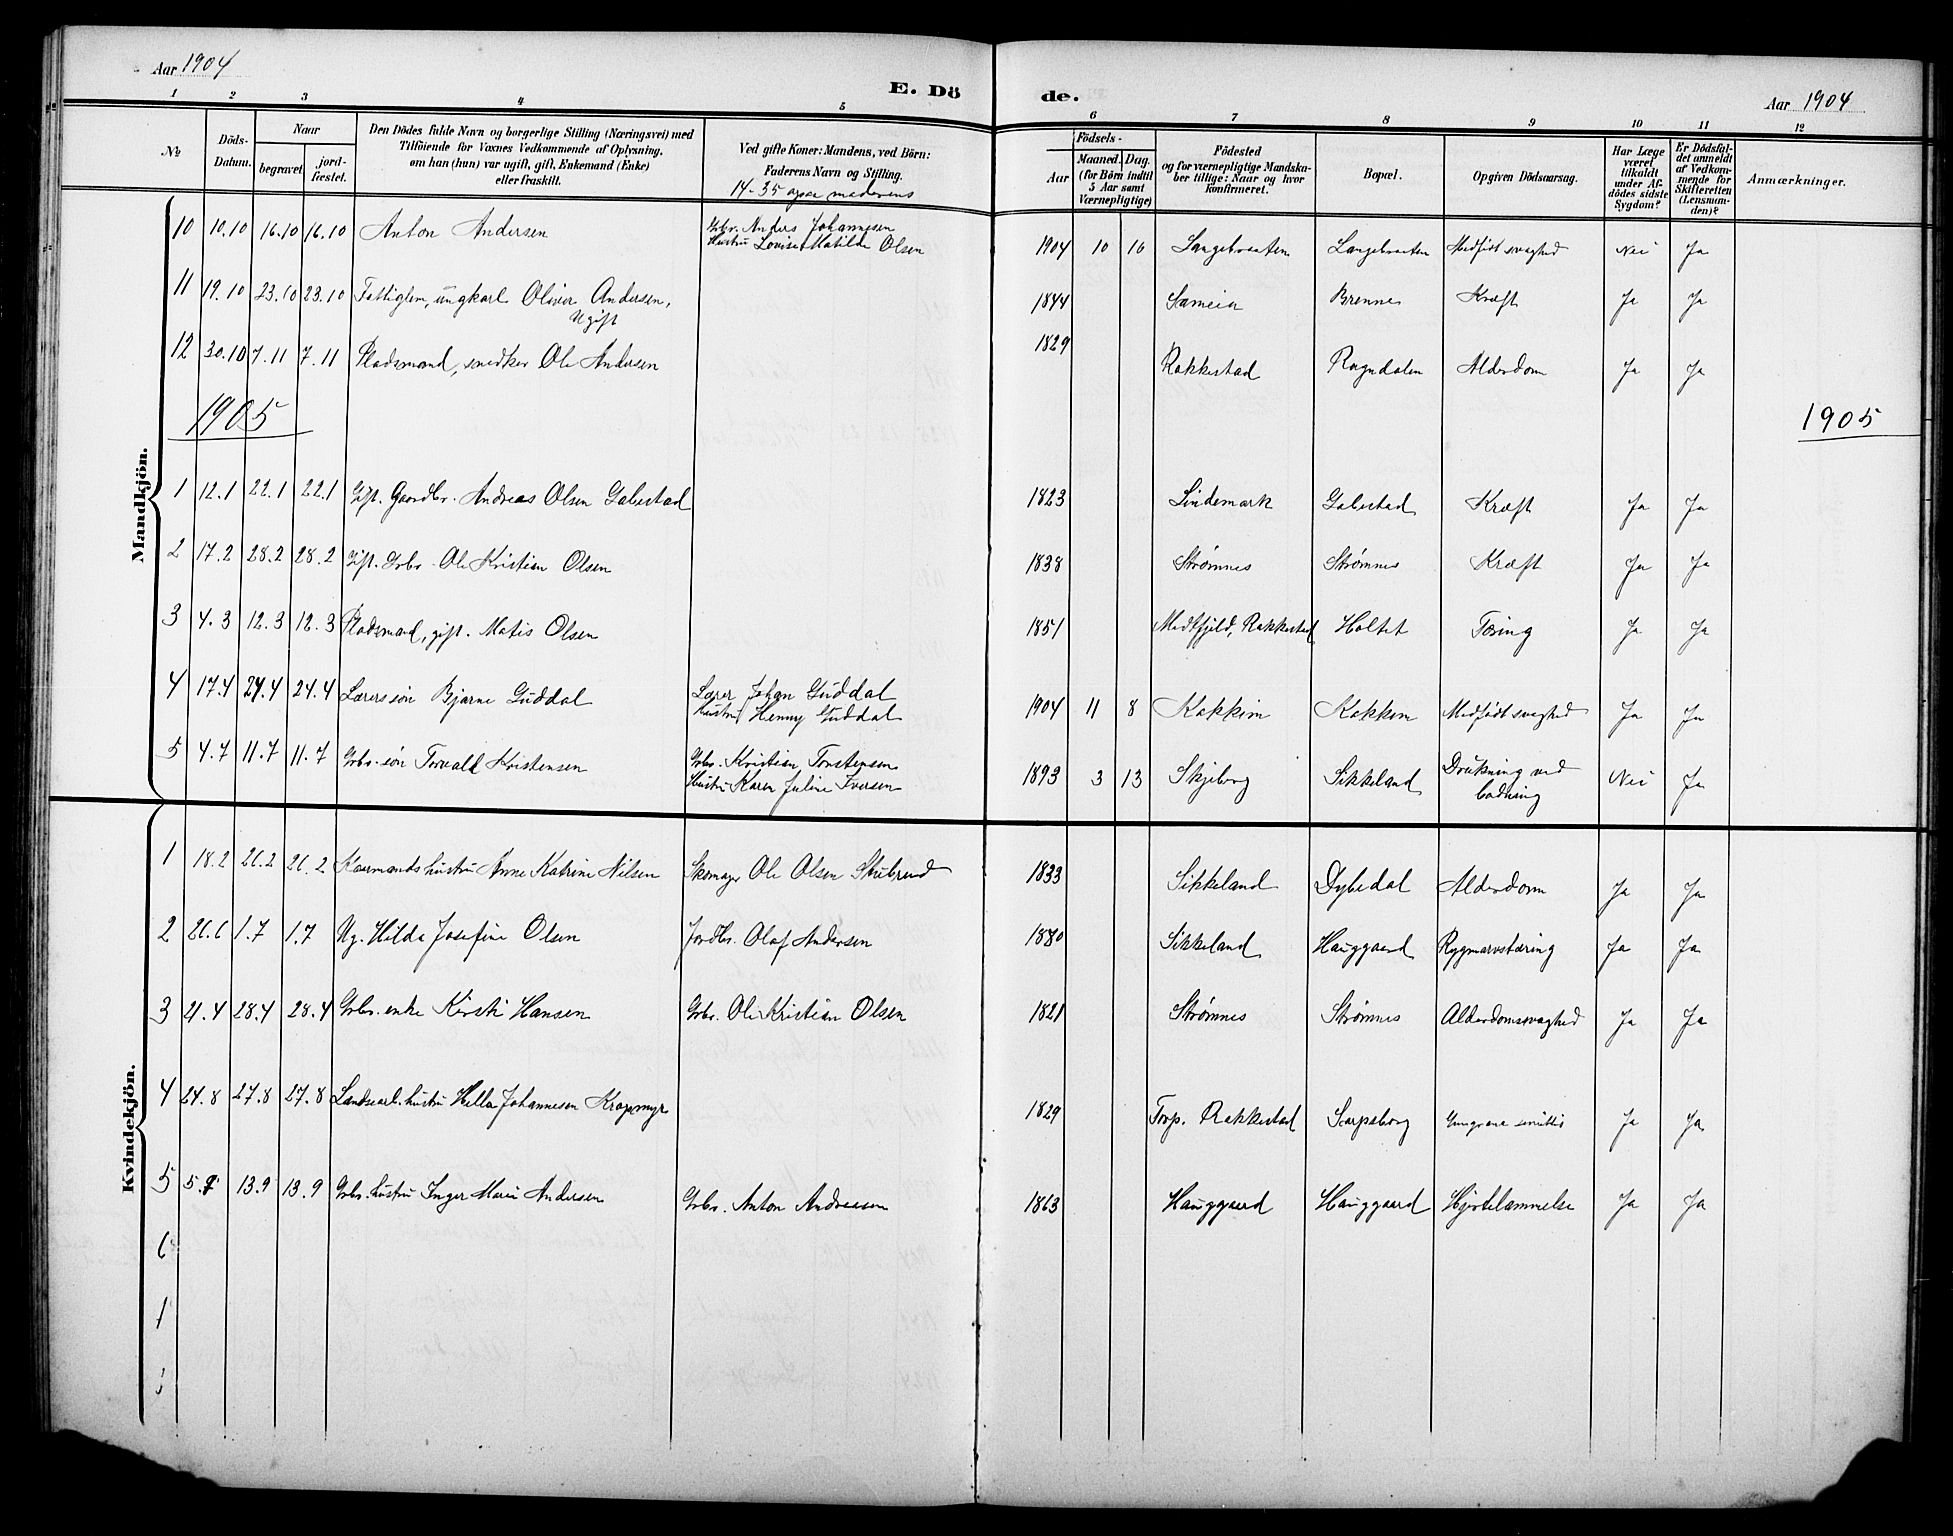 Aar 1904
E. Dö
de.
Aar 1904
1 2 3 4 5 6 7 8 9 10 11 12
No
Döds-Datum.
Naar
begravet
jord-fæstet.
Den Dödes fulde Navn og borgerlige Stilling (Næringsvei) med
Tilföiende for Voxnes Vedkommende af Oplysning,
om han (hun) var ugift, gift, Enkemand (Enke)
eller fraskilt.
Ved gifte Koner: Mandens, ved Börn:
Faderens Navn og Stilling.
14-35 ogsaa moderens
Födsels-
Aar
Maaned. Dag.
(for Börn indtil
5 Aar samt
Værnepligtige)
Födested
og for værnepligtige Mandska-
ber tillige: Naar og hvor
konfirmeret.
Bopæl.
Opgiven Dödsaarsag.
Har Læge
været
tilkaldt
under Af-
dödes sidste
Sygdom?
Er Dödsfal-
det anmeldt
af Vedkom-
mende for
Skifteretten
(Lensman-
den)?
Anmærkninger.
Mandkjön.
10 10.10 16.10 16.10 Anton Andersen Grbr. Anders Johannesen
Hustru Lovise Matilde Olsen 1904 10 10 Langebraaten Langebraaten Medfødt svaghed Nei Ja
11 19.10 23.10 23.10 Fattiglem, ungkarl Oliver Andersen, 1844 Sameia Brennes Kræft Ja Ja
Ugift
12 30.10 7.11 7.11 Pladsmand, snedker Ole Andersen 1829 Rakkestad Rogndalen Alderdom Ja Ja
1905
1905
1 12.1 22.1 22.1 Gift. Gaardbr. Andreas Olsen Gabestad 1823 Lindemark Gabestad Kræft Ja Ja
2 17.2 28.2 28.2 Gift. Grbr. Ole Kristian Olsen 1838 Strømnes Strømnes Kræft Ja Ja
3 4.3 12.3 12.3 Pladsmand, gift. Matis Olsen 1851 Midtfjeld, Rakkestad Holtet Tæring Ja Ja
4 17.4 24.4 24.4 Lærerssøn Bjarne Guddal Lærer Johan Guddal
Hustru Henny Guddal 1904 11 8 Kakkim Kakkim Medfødt svaghed Ja Ja
5 4.7 11.7 11.7 Grbr. søn Torvald Kristensen Grbr. Kristian Torstensen
Hustru Karen Juline Iversen 1893 3 13 Skjeborg Sikkeland Drukning ved
badning Nei Ja
Kvindekjön.
1 18.2 26.2 26.2 Kaarmands hustru Anne Katrine Nilsen Skomager Ole Olsen Stubrud 1833 Sikkeland Dybedal Alderdom Ja Ja
2 26.6 1.7 1.7 Ug. Hilda Josefine Olsen Jordbr. Olaf Andersen 1880 Sikkeland Hauggaard Rygmarvstæring Ja Ja
3 21.4 28.4 28.4 Grbr. enke Kirsti Hansen Grbr. Ole Kristian Olsen 1821 Strømnes Strømnes Alderdomssvaghed Ja Ja
4 24.8 27.8 27.8 Landsarb. hustru Helle Johannesen Krapmyr 1829 Torp. Rakkestad Sarpsborg Gangræna senilis Ja Ja
5 5.9 13.9 13.9 Grbr. hustru Inger Marie Andersen Grbr. Anton Andreasen 1863 Hauggaard Hauggaard Hjertelammelse Ja Ja
6